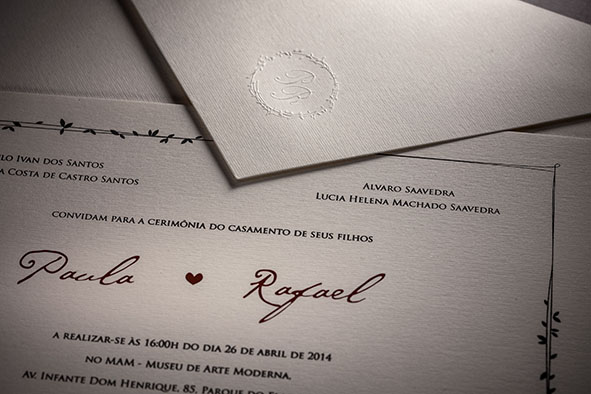 Ivan dos Santos
Costa de Castro Santos
Alvaro Saavedra
Lucia Helena Machado Saavedra
convidam para a cerimônia do casamento de seus filhos
Paula ♥ Rafael
a realizar-se às 16:00h do dia 26 de abril de 2014
no MAM - Museu de Arte Moderna.
Av. Infante Dom Henrique, 85, Parque do